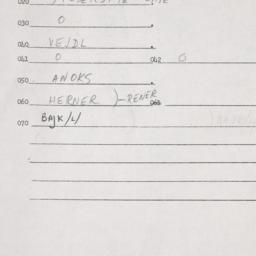 020
030 O
040 VEJDL
041 O 042 O
050 ANOKS
060 HERNER )-RENER 063
070 BAJK/L/